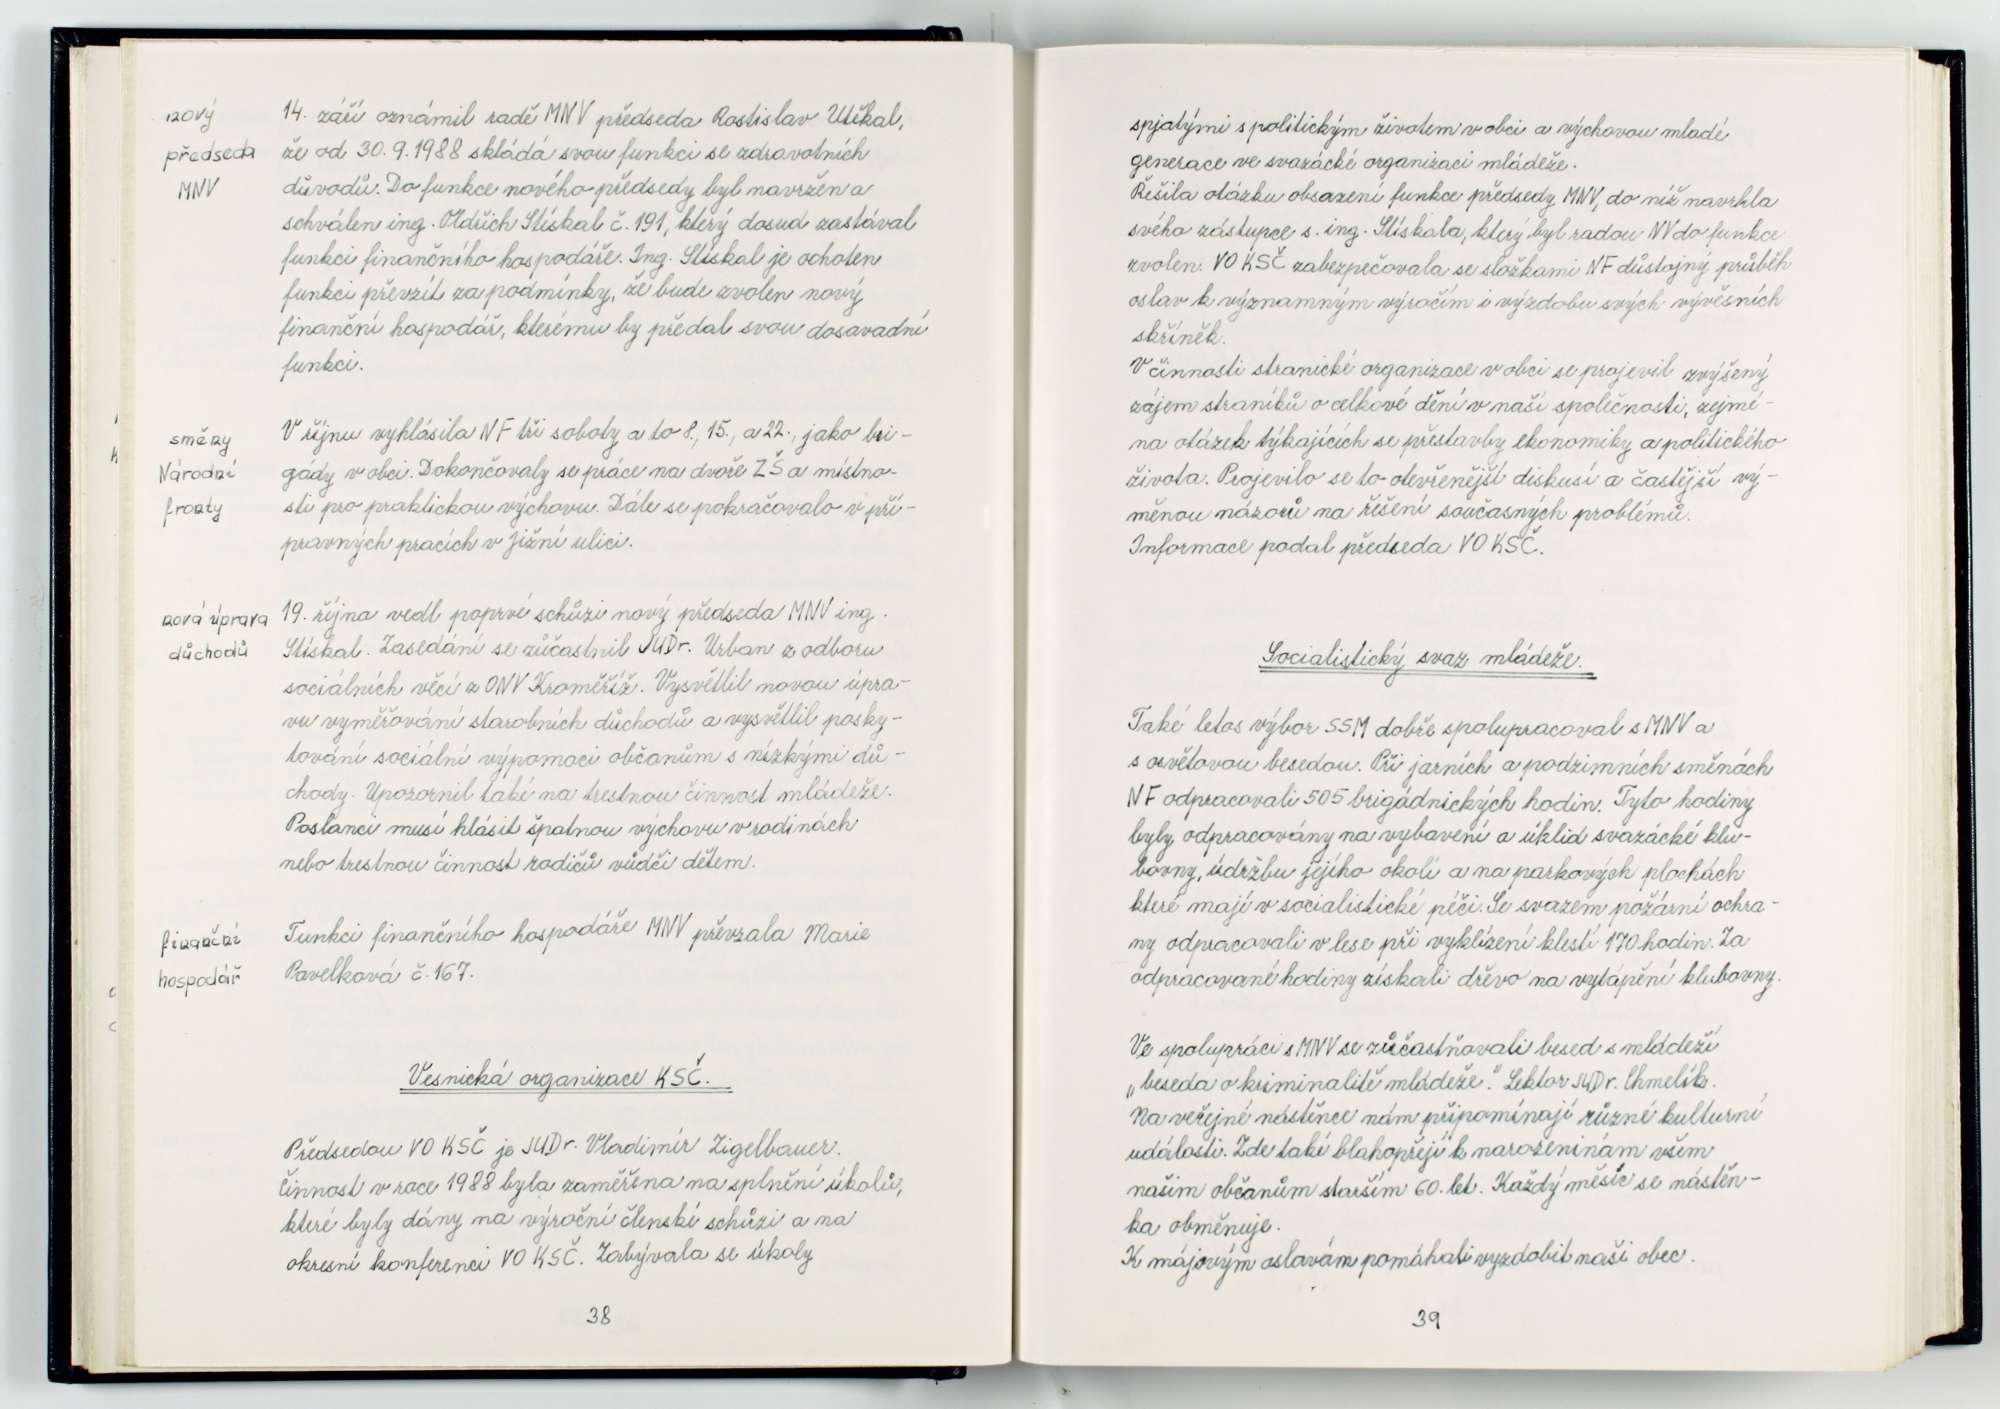 nový
předseda
MNV
14. září oznámil radě MNV předseda Rostislav Utěkal,
že od 30.9.1988 skládá svou funkci se zdravotních
důvodů. Do funkce nového předsedy byl navržen a
schválen ing. Oldřich Stískal č. 191, který dosud zastával
funkci finančního hospodáře. Ing. Stískal je ochoten
funkci převzít za podmínky, že bude zvolen nový
finanční hospodář, kterému by předal svou dosavadní
funkci.
směny
Národní
fronty
V říjnu vyhlásila NF tři soboty a to 8., 15., a 22., jako bri-
gády v obci. Dokončovaly se práce na dvoře ZŠ a místno-
sti pro praktickou výchovu. Dále se pokračovalo v pří-
pravných pracích v jižní ulici.
nová úprava
důchodů
19. října vedl poprvé schůzi nový předseda MNV ing.
Stískal. Zasedání se zůčastnil JUDr. Urban z odboru
sociálních věcí z ONV Kroměříž. Vysvětlil novou úpra-
vu vyměřování starobních důchodů a vysvětlil posky-
tování sociální výpomoci občanům s nízkými dů-
chody. Upozornil také na trestnou činnost mládeže.
Poslanci musí hlásit špatnou výchovu v rodinách
nebo trestnou činnost rodičů vůdči dětem.
finanční
hospodář
Funkci finančního hospodáře MNV převzala Marie
Pavelková č. 167.
Vesnická organizace KSČ.
Předsedou VO KSČ je JUDr. Vladimír Zigelbauer.
Činnost v roce 1988 byla zaměřena na splnění úkolů,
které byly dány na výroční členské schůzi a na
okresní konferenci VO KSČ. Zabývala se úkoly
38
spjatými s politickým životem v obci a výchovou mladé
generace ve svazácké organizaci mládeže.
Řešila otázku obsazení funkce předsedy MNV, do níž navrhla
svého zástupce s. ing. Stískala, který byl radou NV do funkce
zvolen. VO KSČ zabezpečovala se složkami NF důstojný průběh
oslav k významným výročím i výzdobu svých vývěsních
skříněk.
V činnosti stranické organizace v obci se projevil zvýšený
zájem straníků o celkové dění v naší společnosti, zejmé-
na otázek týkajících se přestavby ekonomiky a politického
života. Projevilo se to otevřenější diskusí a častější vý-
měnou názorů na řešení současných problémů.
Informace podal předseda VO KSČ.
Socialistický svaz mládeže.
Také letos výbor SSM dobře spolupracoval s MNV a
s osvětovou besedou. Při jarních a podzimních směnách
NF odpracovali 505 brigádnických hodin. Tyto hodiny
byly odpracovány na vybavení a úklid svazácké klu-
bovny, údržbu jejího okolí a na parkových plochách
které mají v socialistické péči. Se svazem požární ochra-
ny odpracovali v lese při vyklízení klestí 170 hodin. Za
odpracované hodiny získali dřevo na vytápění klubovny.
Ve spolupráci s MNV se zůčastňovali besed s mládeží
„beseda o kriminalitě mládeže." Lektor JUDr. Chmelík.
Na veřejné nástěnce nám připomínají různé kulturní
události. Zde také blahopřejí k narozeninám všem
našim občanům starším 60. let. Každý měsíc se nástěn-
ka obměňuje.
K májovým oslavám pomáhali vyzdobit naši obec.
39